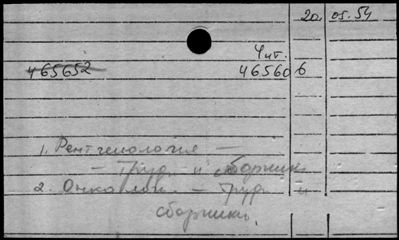 20.05.54
Чит.
465652 465606
1. Рентгенология -
- Труды и сборники
2. Онкология - Труды и
сборники.